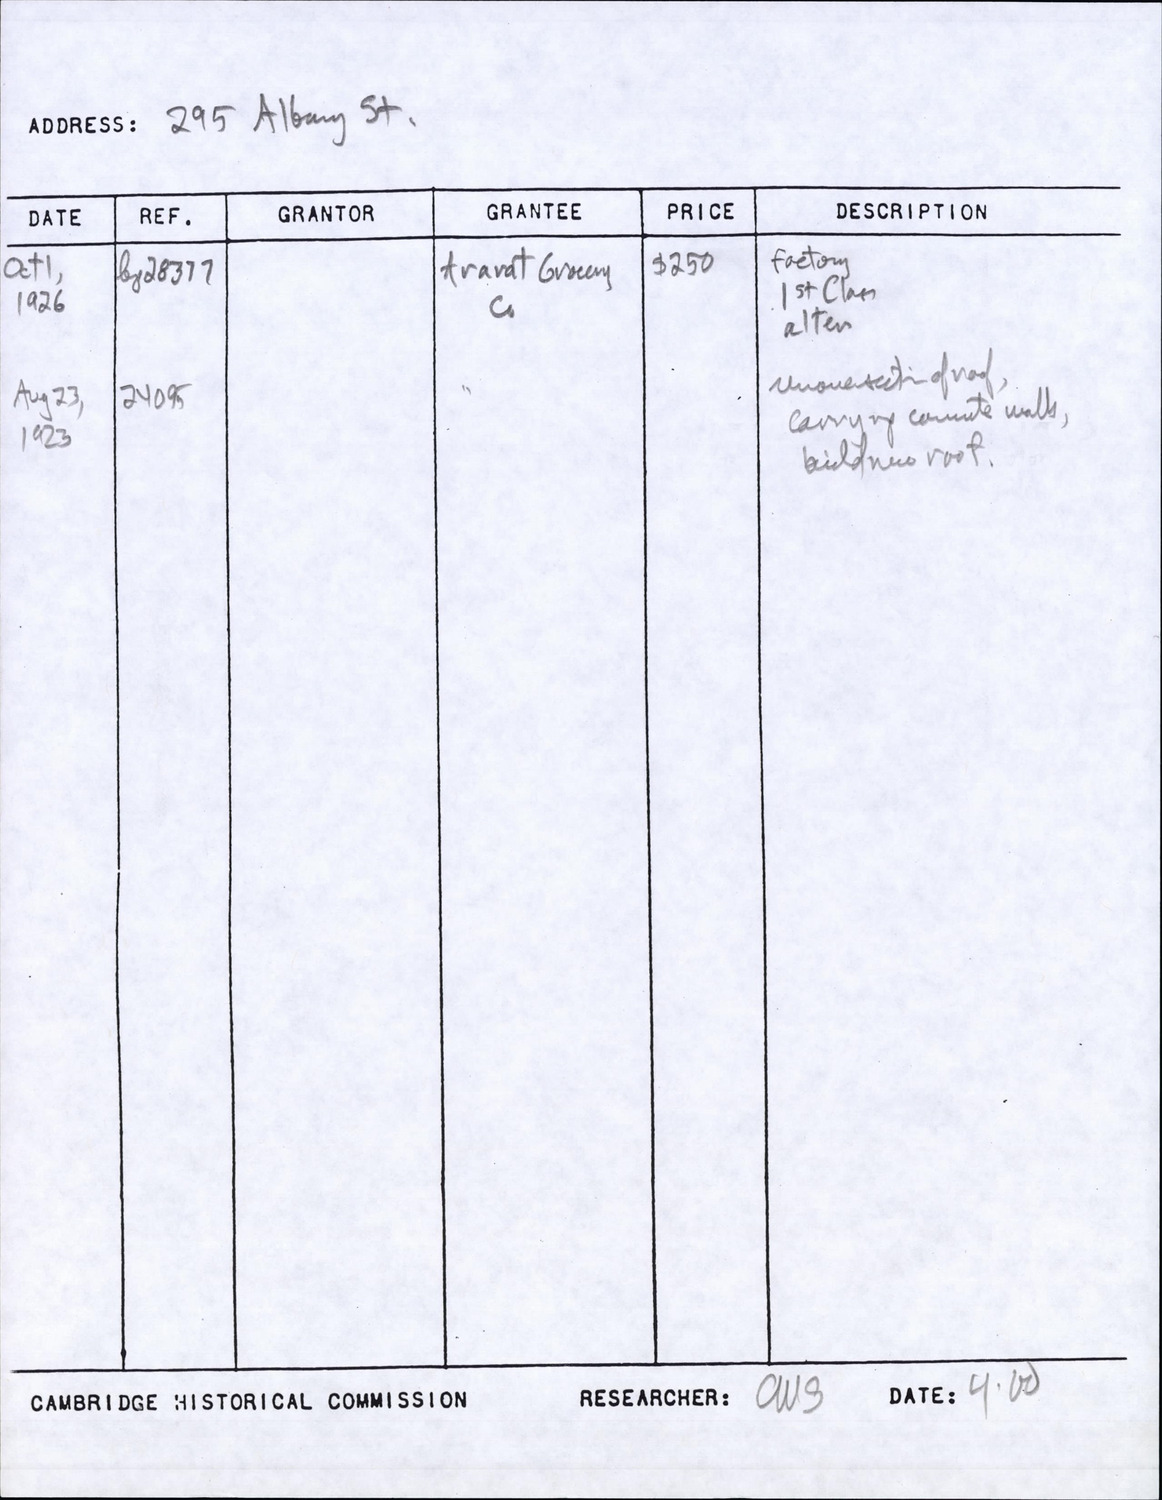 ADDRESS: 295 Albany St.
DATE REF. GRANTOR GRANTEE PRICE DESCRIPTION
Oct 1, bp28377 Ararat Grocery $250 factory
1926 Co 1st Class
alter
Aug 23, 24095 " remove section of roof,
1923 carrying concrete walls,
build new roof.
CAMBRIDGE HISTORICAL COMMISSION RESEARCHER: DATE: 4.00